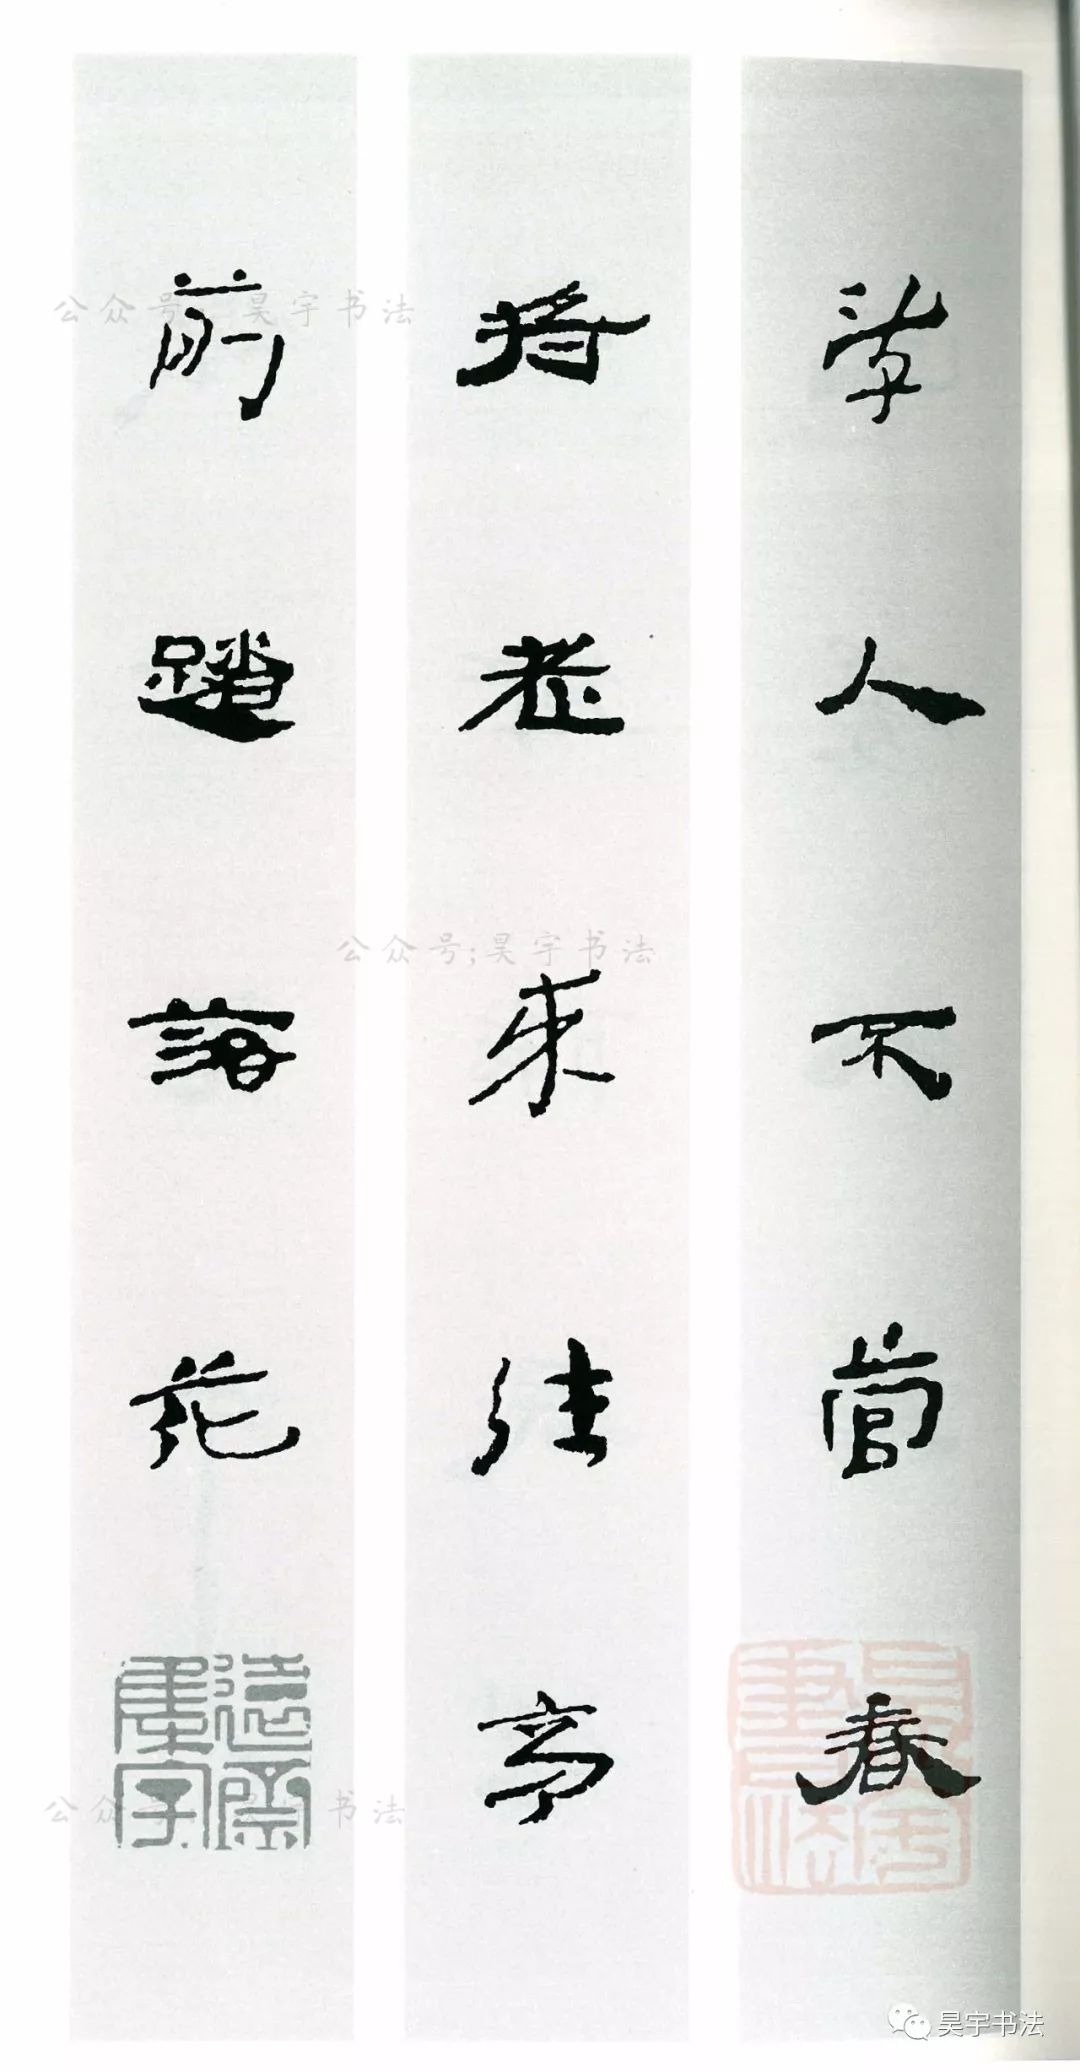 游人不管春
将老来往亭
前踏落花
集字
公众号;昊宇书法
公众号;昊宇书法
公众号;昊宇书法
昊宇書法
昊宇书法